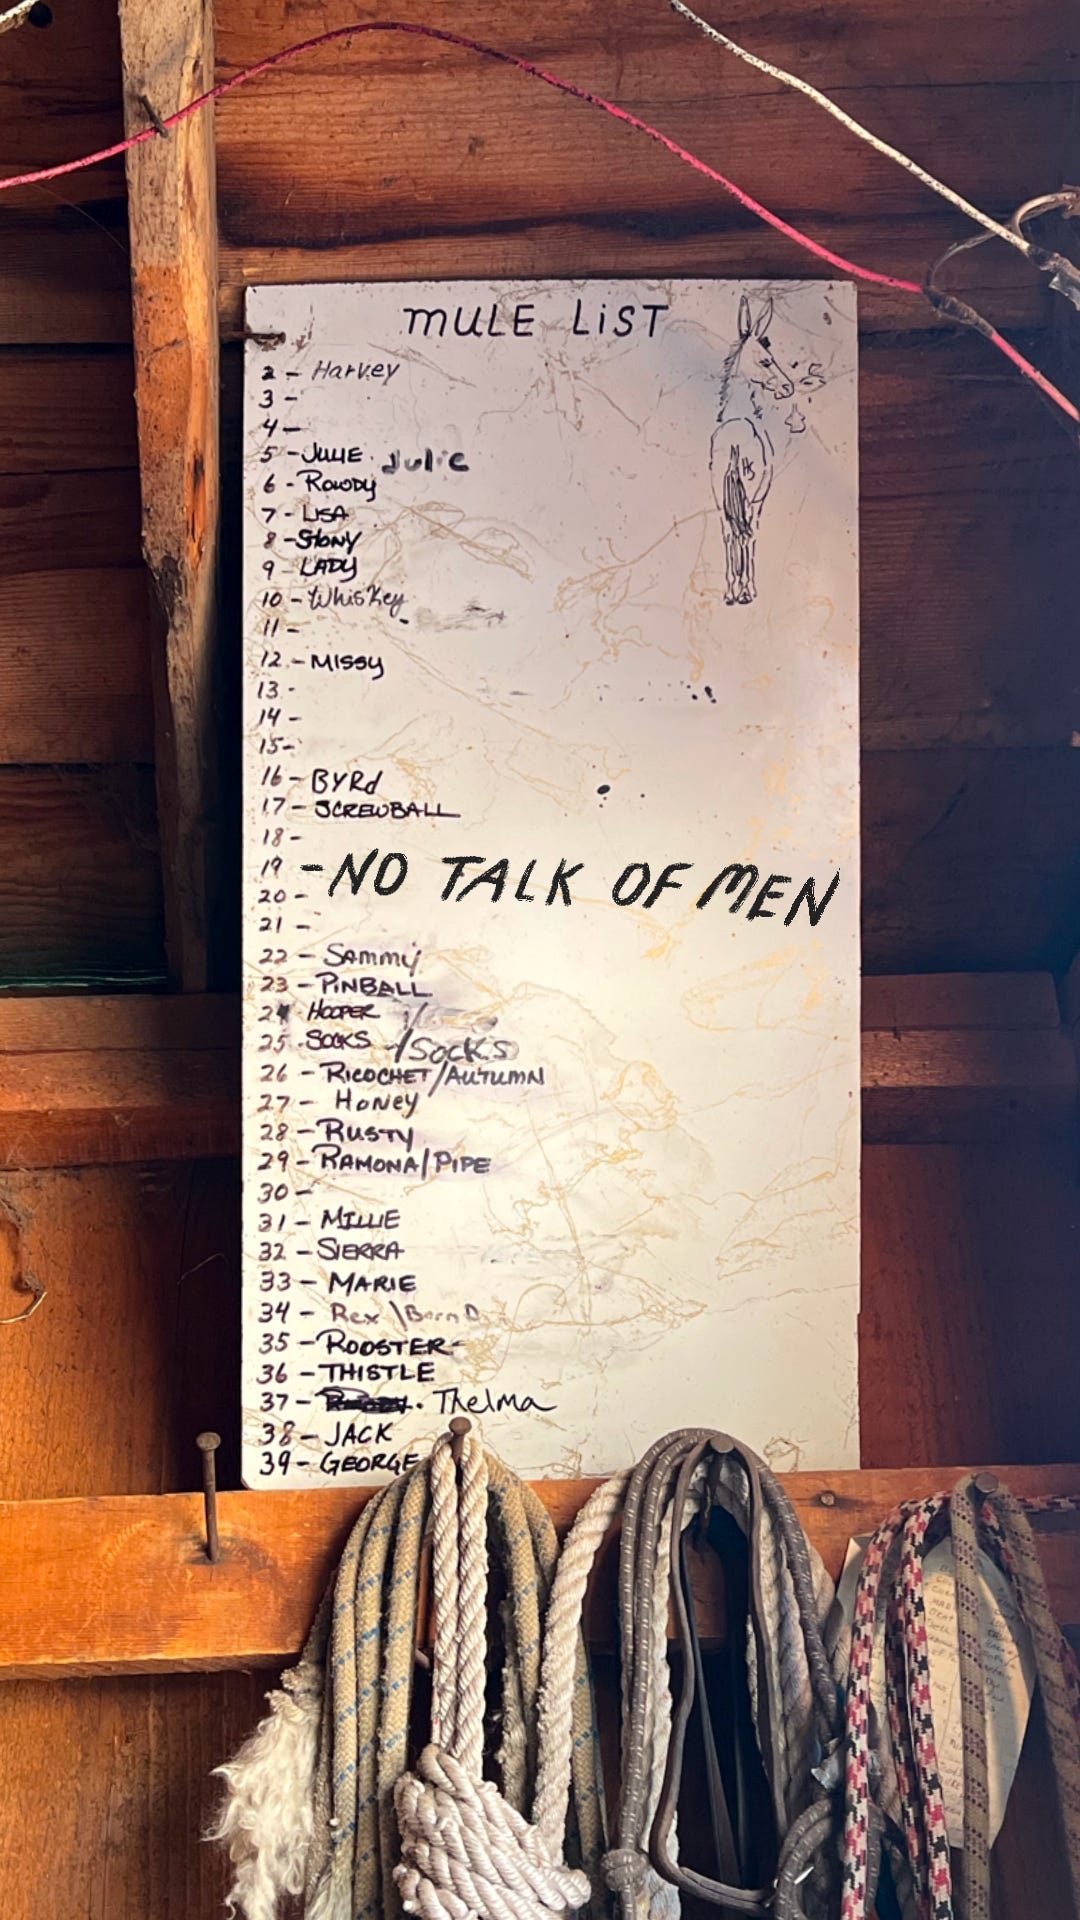 MULE LIST
2 - Harvey
3 -
4 -
5 - JULIE. Julie
6 - ROWDY
7 - LISA
8 - STONY
9 - LADY
10 - Whiskey
11 -
12 - MISSY
13 -
14 -
15 -
16 - BYRd
17 - SCREWBALL
18 -
19 - NO TALK OF MEN
20 -
21 -
22 - SAMMY
23 - PINBALL
24 HOOPER
25 - SOCKS / SOCKS
26 - RICOCHET/AUTUMN
27 - HONEY
28 - RUSTY
29 - RAMONA/PIPE
30 -
31 - MILLIE
32 - SIERRA
33 - MARIE
34 - Rex \
35 - ROOSTER -
36 - THISTLE
37 - . Thelma
38 - JACK
39 - GEORGE